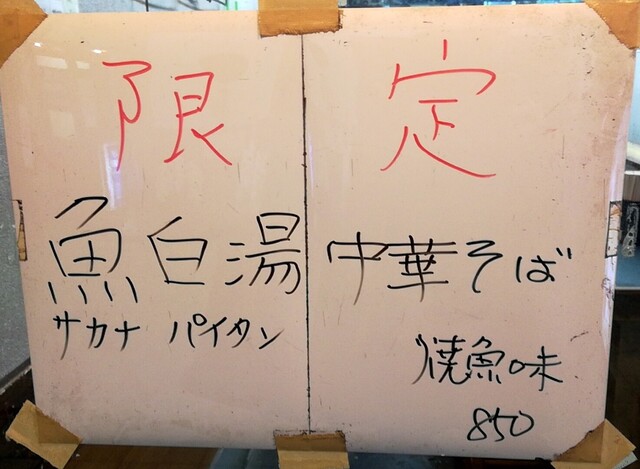 限定
魚白湯中華そば
サカナ パイタン
焼魚味
850